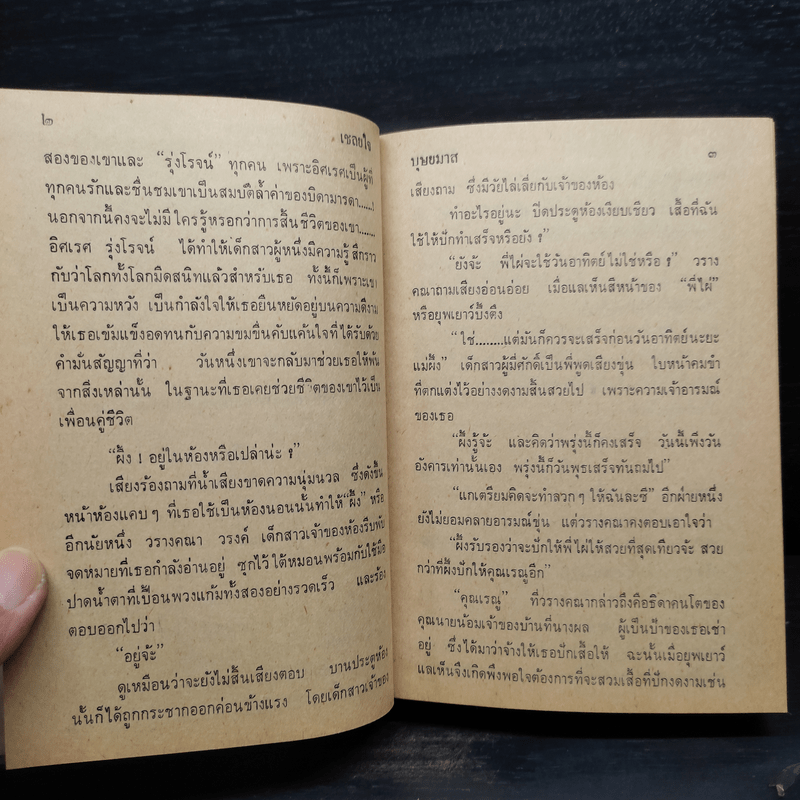 ๒
เชลยใจ
สองของเขาและ “รุ่งโรจน์” ทุกคน เพราะอิศเรศเป็นผู้ที่
ทุกคนรักและชื่นชมเขาเป็นสมบัติล้ำค่าของบิดามารดา......!
นอกจากนี้คงจะไม่มีใครรู้หรอกว่าการสิ้นชีวิตของเขา......
อิศเรศ รุ่งโรจน์ ได้ทำให้เด็กสาวผู้หนึ่งมีความรู้สึกราว
กับว่าโลกทั้งโลกมืดสนิทแล้วสำหรับเธอ ทั้งนี้ก็เพราะเขา
เป็นความหวัง เป็นกำลังใจให้เธอยืนหยัดอยู่บนความดีงาม
ให้เธอเข้มแข็งอดทนกับความขมขื่นคับแค้นใจที่ได้รับด้วย
คำมั่นสัญญาที่ว่า วันหนึ่งเขาจะกลับมาช่วยเธอให้พ้น
จากสิ่งเหล่านั้น ในฐานะที่เธอเคยช่วยชีวิตของเขาไว้เป็น
เพื่อนคู่ชีวิต
“ผึ้ง ! อยู่ในห้องหรือเปล่าน่ะ ?”
เสียงร้องถามที่น้ำเสียงขาดความนุ่มนวล ซึ่งดังขึ้น
หน้าห้องแคบๆ ที่เธอใช้เป็นห้องนอนนั้นทำให้ “ผึ้ง” หรือ
อีกนัยหนึ่ง วรางคณา วรงค์ เด็กสาวเจ้าของห้องรีบพับ
จดหมายที่เธอกำลังอ่านอยู่ ซุกไว้ใต้หมอนพร้อมกับใช้มือ
ปาดน้ำตาที่เปื้อนพวงแก้มทั้งสองอย่างรวดเร็ว และร้อง
ตอบออกไปว่า
“อยู่จ้ะ”
ดูเหมือนว่าจะยังไม่สิ้นเสียงตอบ บานประตูห้อง
นั้นก็ได้ถูกกระชากออกค่อนข้างแรง โดยเด็กสาวเจ้าของ
บุษยมาส
๓
เสียงถาม ซึ่งมีวัยไล่เลี่ยกับเจ้าของห้อง
ทำอะไรอยู่นะ ปิดประตูห้องเงียบเชียว เสื้อที่ฉัน
ใช้ให้ปักทำเสร็จหรือยัง ?”
“ยังจ้ะ พี่ไผ่จะใช้วันอาทิตย์ไม่ใช่หรือ ?” วราง
คณาถามเสียงอ่อนอ่อย เมื่อแลเห็นสีหน้าของ “พี่ไผ่”
หรือยุพเยาว์บึ้งตึง
“ใช่........แต่มันก็ควรจะเสร็จก่อนวันอาทิตย์นะยะ
แม่ผึ้ง” เด็กสาวผู้มีศักดิ์เป็นพี่พูดเสียงขุ่น ใบหน้าคมขำ
ที่ตกแต่งไว้อย่างงดงามสิ้นสวยไป เพราะความเจ้าอารมณ์
ของเธอ
“ผึ้งรู้จ้ะ และคิดว่าพรุ่งนี้ก็คงเสร็จ วันนี้เพิ่งวัน
อังคารเท่านั้นเอง พรุ่งนี้ก็วันพุธเสร็จทันถมไป”
“แกเตรียมคิดจะทำลวกๆ ให้ฉันละซี” อีกฝ่ายหนึ่ง
ยังไม่ยอมคลายอารมณ์ขุ่น แต่วรางคณาคงตอบเอาใจว่า
“ผึ้งรับรองว่าจะปักให้พี่ไผ่ให้สวยที่สุดเทียวจ้ะ สวย
กว่าที่ผึ้งปักให้คุณเรณูอีก”
“คุณเรณู” ที่วรางคณากล่าวถึงคือธิดาคนโตของ
คุณนายน้อมเจ้าของบ้านที่นางผล ผู้เป็นป้าของเธอเช่า
อยู่ ซึ่งได้มาว่าจ้างให้เธอปักเสื้อให้ ฉะนั้นเมื่อยุพเยาว์
แลเห็นจึงเกิดพึงพอใจต้องการที่จะสวมเสื้อที่ปักงดงามเช่น